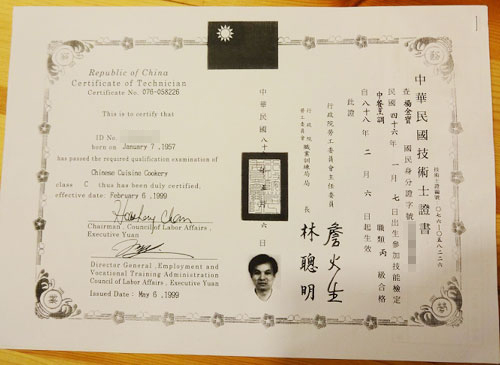 Republic of China
Certificate of Technician
Certificate No. 076-058226
This is to certify that
ID No
born on January 7, 1957
has passed the required qualification examination of
Chinese Cuisine Cookery
class C thus has been duly certified.
effective date: February 6, 1999
Chairman, Council of Labor Affairs,
Executive Yuan
Director General, Employment and
Vocational Training Administration
Council of Labor Affairs, Executive Yuan
Issued Date: May 6, 1999
中華民國技術士證書
技術士證編號 〇七六-〇五八二二六
查楊金寶 國民身分證字號
民國四十六年一月七日出生參加技能檢定
中餐烹調 職類丙級合格
自八十八年二月六日起生效
此證
行政院勞工委員會主任委員
詹火生
行政院勞工委員會
職業訓練局局長
林聰明
中華民國八十 年五月六日